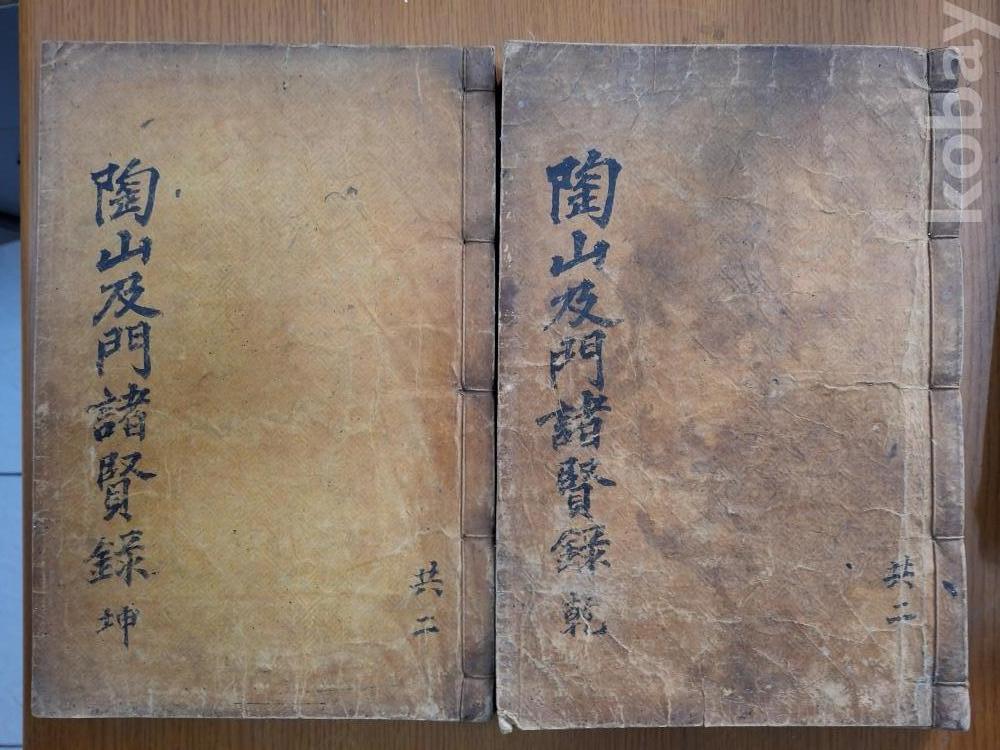 陶山及門諸賢錄 乾
共二
陶山及門諸賢錄 坤
共二
kobay